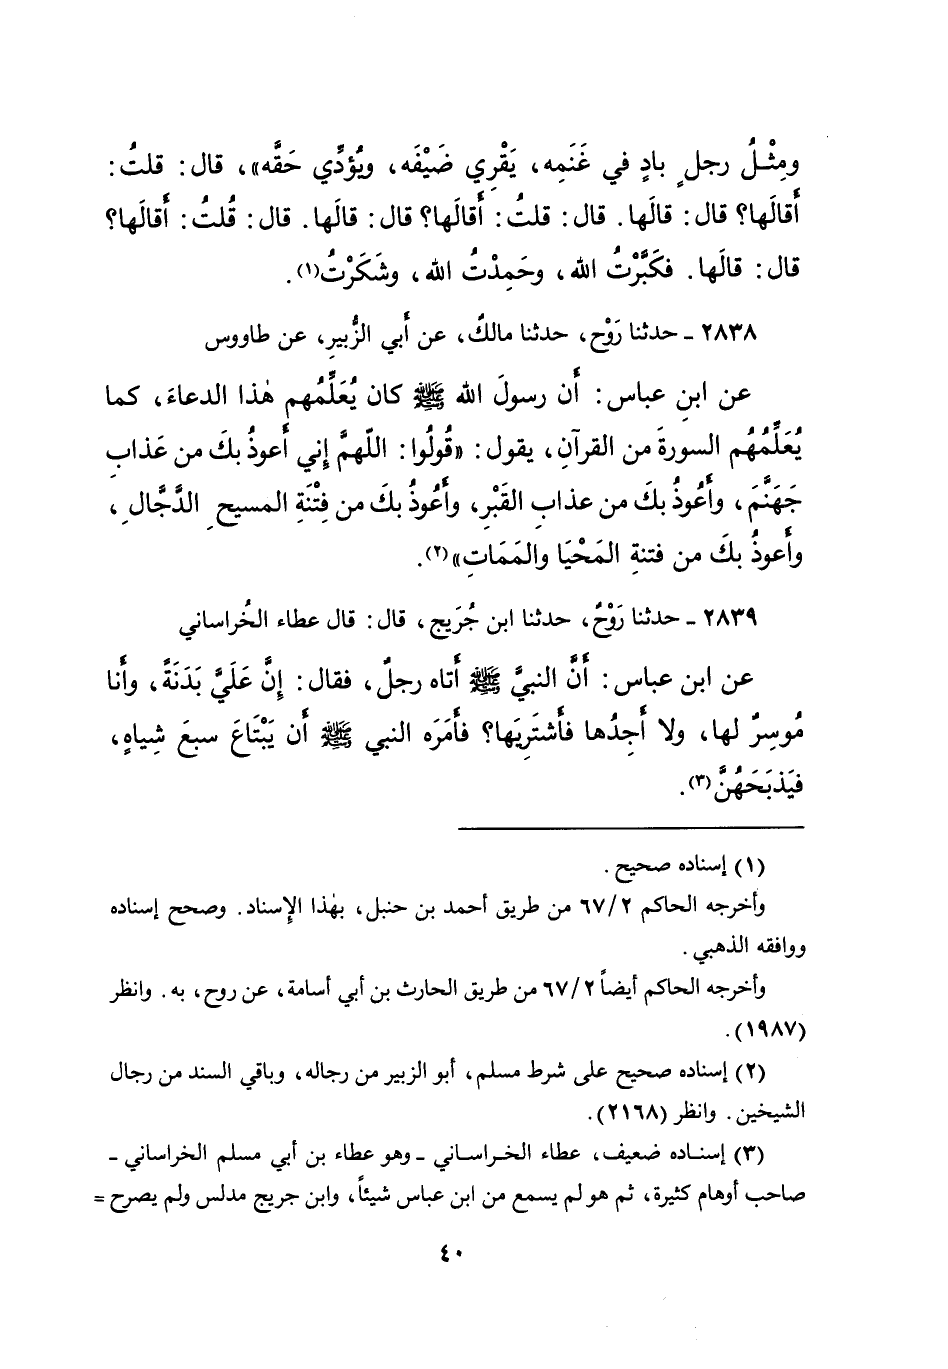 ومِثْلُ رجلٍ بادٍ في غَنَمِه، يَقْرِي ضَيْفَه، ويُؤدِّي حَقَّه»، قال: قلتُ:
أَقالَها؟ قال: قالَها. قال: قلتُ: أَقالَها؟ قال: قالَها. قال: قُلتُ: أَقالَها؟
قال: قالَها. فكَبَّرْتُ الله، وحَمِدْتُ الله، وشَكَرْتُ(١).
٢٨٣٨ ـ حدثنا رَوْح، حدثنا مالكٌ، عن أَبي الزُّبيرِ، عن طاووس
عن ابنِ عباس: أَن رسولَ الله ﷺ كان يُعَلِّمُهم هٰذا الدعاءَ، كما
يُعَلِّمُهُم السورةَ من القرآنِ، يقول: «قُولُوا: اللّهمَّ إني أَعوذُ بكَ من عَذابِ
جَهَنَّمَ، وأَعُوذُ بكَ من عذابِ القَبْرِ، وأَعُوذُ بكَ من فِتْنَةِ المسيحِ الدَّجَّالِ،
وأَعوذُ بكَ من فتنةِ المَحْيَا والمَمَاتِ»(٢).
٢٨٣٩ ـ حدثنا رَوْحٌ، حدثنا ابن جُرَيج، قال: قال عطاء الخُراساني
عن ابن عباس: أَنَّ النبيَّ ﷺ أَتاه رجلٌ، فقال: إِنَّ عَلَيَّ بَدَنَةً، وأَنا
مُوسِرٌ لها، ولا أَجِدُها فأَشتَرِيَها؟ فأَمَرَه النبي ﷺ أَن يَبْتَاعَ سبعَ شِياهٍ،
فيَذبَحَهُنَّ(٣).
(١) إسناده صحيح.
وأخرجه الحاكم ٦٧/٢ من طريق أحمد بن حنبل، بهٰذا الإسناد. وصحح إسناده
ووافقه الذهبي.
وأخرجه الحاكم أيضاً ٦٧/٢ من طريق الحارث بن أبي أسامة، عن روح، به. وانظر
(١٩٨٧).
(٢) إسناده صحيح على شرط مسلم، أبو الزبير من رجاله، وباقي السند من رجال
الشيخين. وانظر (٢١٦٨).
(٣) إسناده ضعيف، عطاء الخراساني ـ وهو عطاء بن أبي مسلم الخراساني ـ
صاحب أوهام كثيرة، ثم هو لم يسمع من ابن عباس شيئاً، وابن جريج مدلس ولم يصرح =
٤٠